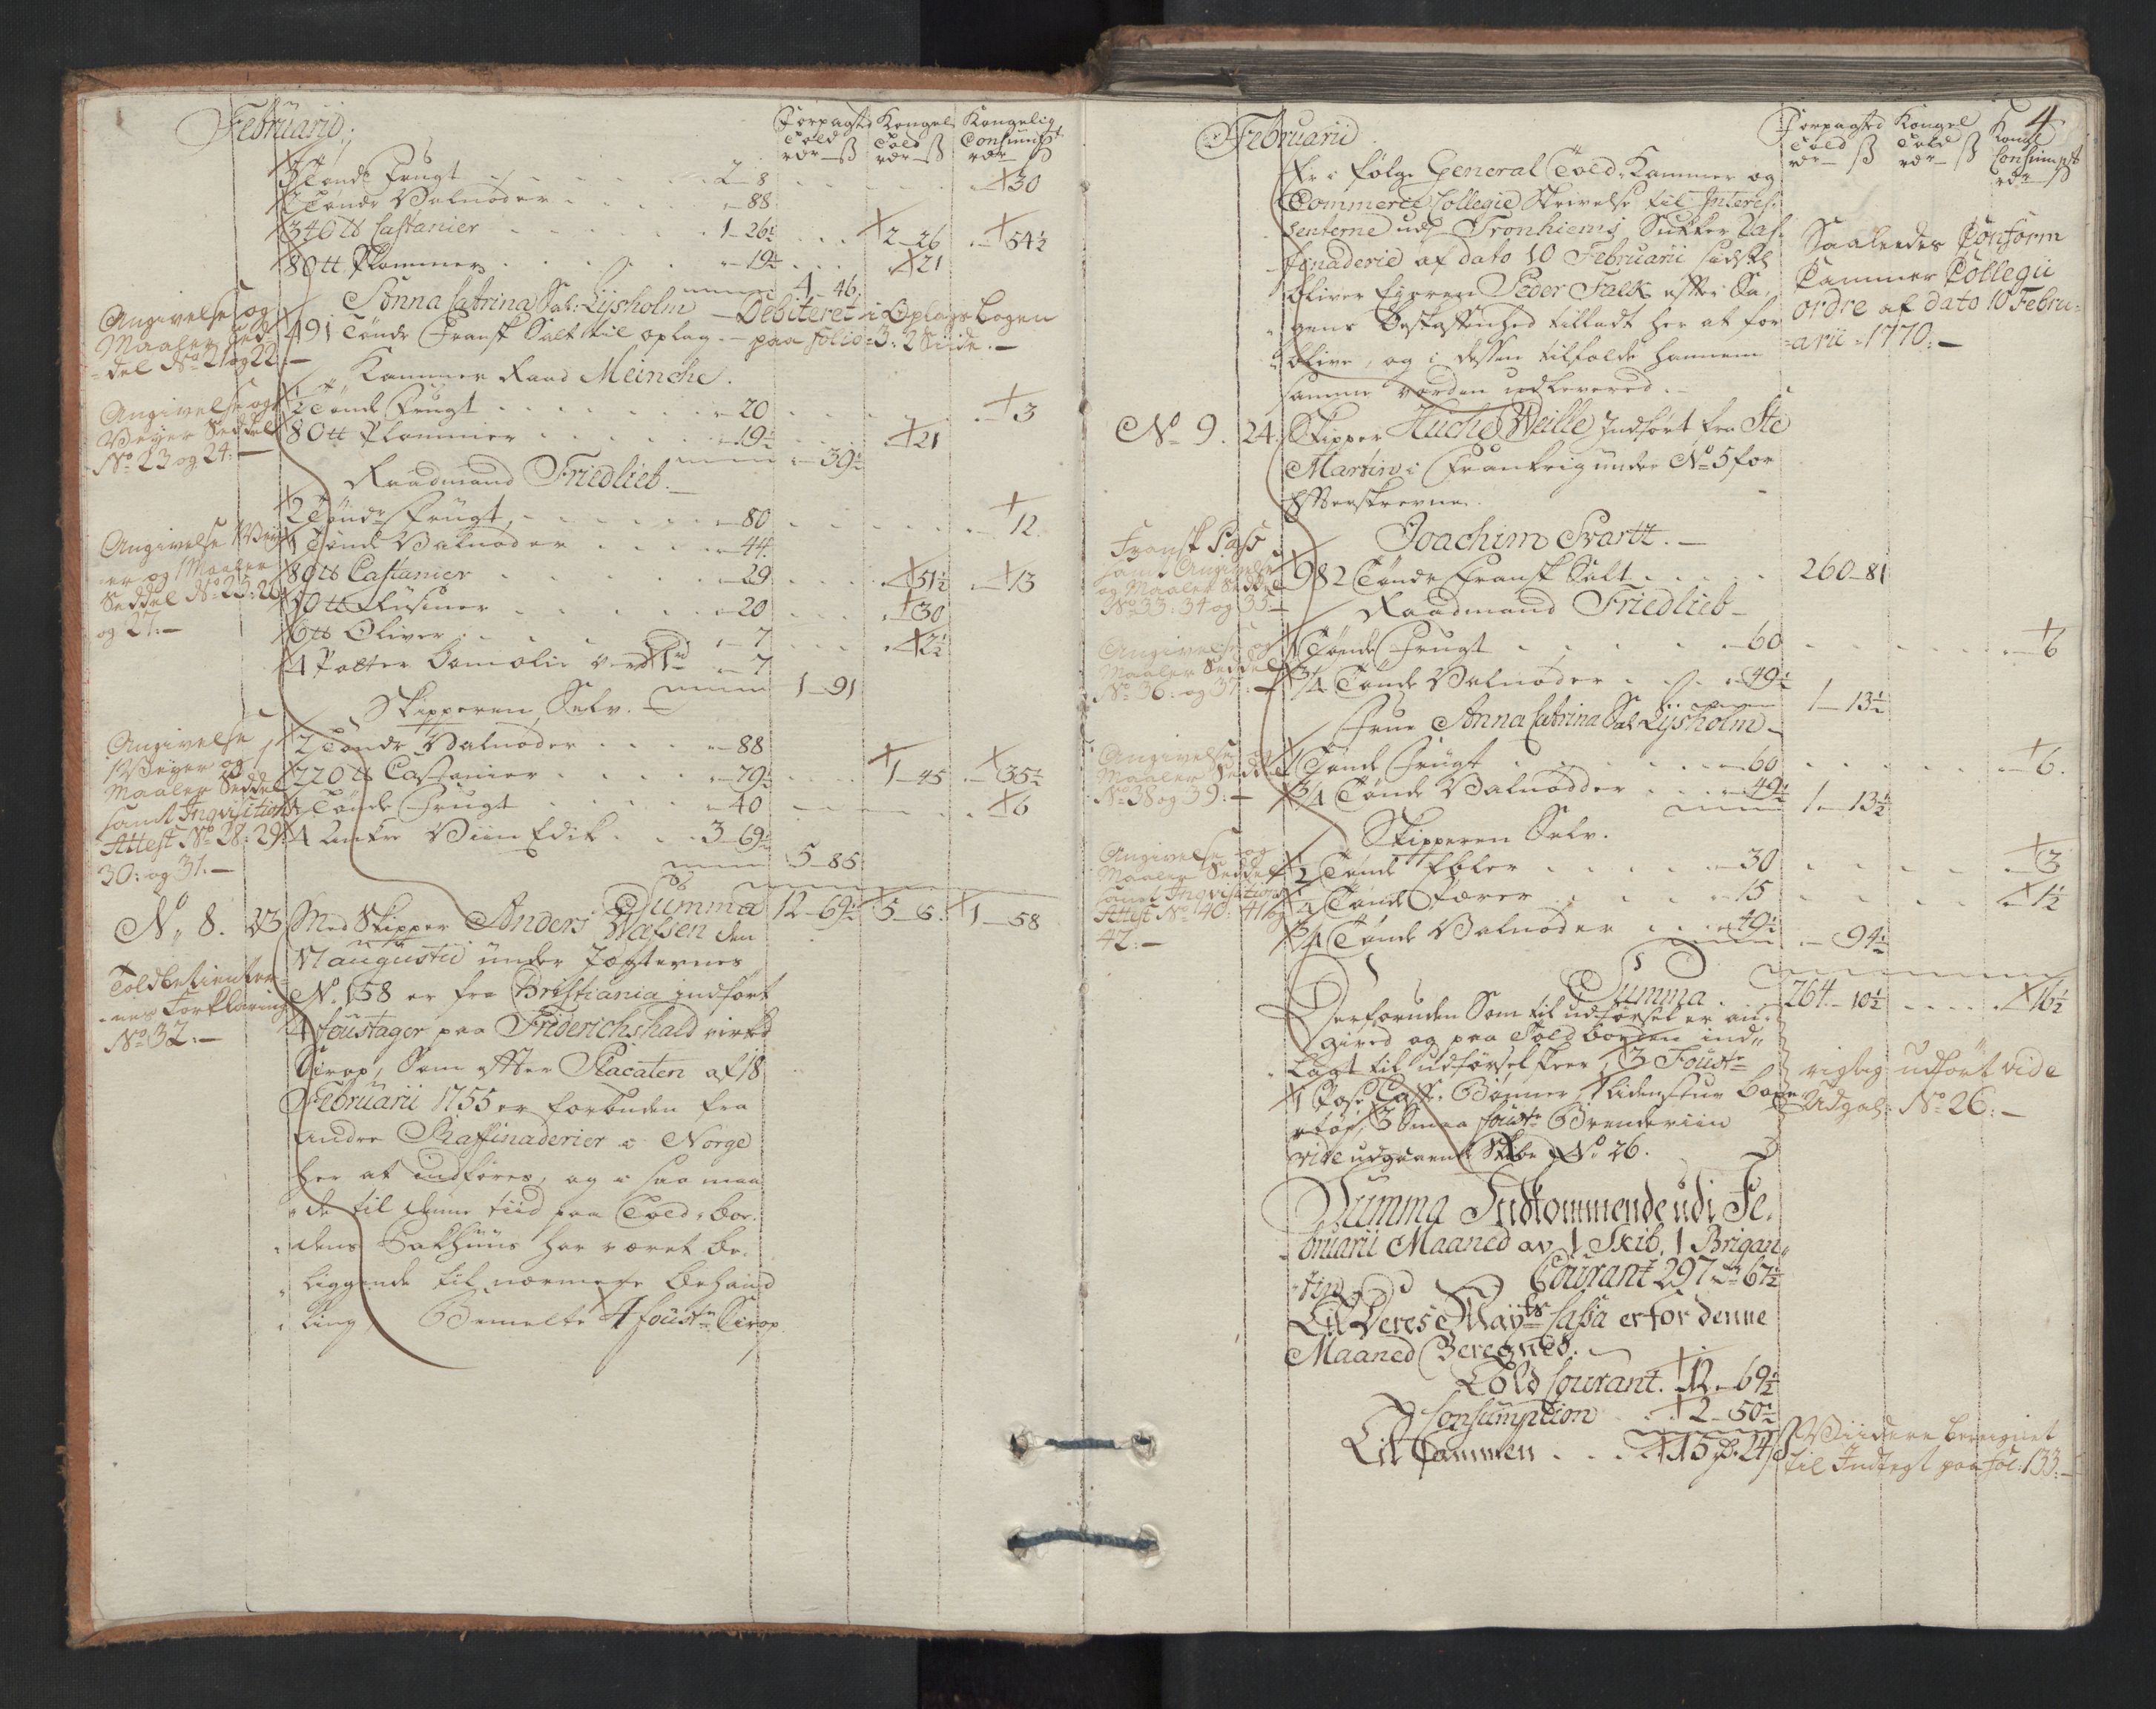 Februarii
Forpagted Kongel Kongelig
Told Told Consumpt
rdr ß rdr ß rdr ß
5 Tønde Frugt 2 8 30
2 Tønde Valnøder 88
340 tt Castanier 1 26½ 2 26 54½
80 tt Plommer 19½ 21
4 46
Anna Catrina Sal: Lysholm Debiteret i Oplags Bogen
Angivelse og
Maaler Sed
del No 21 og 22
491 Tønde Fransk Salt til oplag paa folio 3: 2 Siide
Kammer Raad Meinche
Angivelse og
Veyer Seddel
No 23 og 24
½ Tønde Frugt 20 3
80 tt Plommer 19½ 21
39½
Raadmand Friedlieb
2 Tønde Frugt 80 12
Angivelse Vey
er og 1 Maaler
Seddel No 25: 26
og 27
1 Tønde Valnøder 44
80 tt Castanier 29 51½ 13
50 tt Rusiner 20 30
6 tt Oliver 7 2½
4 Potter Bomolie 7
1 91
Skipperen Selv
Angivelse
Veyer og
Maaler Seddel
samt Inqvisitions
Attest No 28: 29:
30: og 31
2 Tønde Valnøder 88
220 tt Castanier 79½ 1 45 35½
1 Tønde Frugt 40 6
4 Anker Viin Edik 3 69½
5 85
Summa 12 69½ 5 6 1 58
No 8. 23 Med Skipper Anders Welsen den
17 augustii under Jægternes
Toldbetienter
nes Forklaring
No 32
No. 158 er fra Christiania indført
4 foustager paa Friderichshald virket
Sirop, Som efter Placaten af 18
Februarii 1755 er forbuden fra
andre Raffinaderier i Norge
her at indføres, og i saa maa
de til denne tiid paa Told-Boe
dens Pakhuus har været be
liggende til nærmere behand
ling, Bemelte 4 fouste Sirop
4
Februarii
Forpagted Kongel Kongel
Told Told Consumpt
rdr ß rdr ß rdr ß
Er i følge General Told-Kammer og
Commerce Collegie Skrivelse til Interes
senterne udj Tronhiems Sukker Raf
finaderie af dato 10 Februarii sidstl
bliver Eyeren Peder Falck efter Sa
gens Beskaffenhed tilladt her at for
blive, og i dessen tilfælde hannem
samme vorden udlevered
Saaledes Conform
Cammer Collegii
ordre af dato 10 Febru
arii 1770
No 9. 24. Skipper Huche Weille Indført fra Ste
Martin i Frankrig under No 5 for
Efterskrevne
Joachim Svartt.
Fransk Pass
samt Angivelse
og Maaler Seddel
No 33: 34 og 35
982 Tønde Fransk Salt 260 81
Raadmand Friedlieb
Angivelse og
Maaler Seddel
No 36: og 37
1½ Tønde Frugt 60 6
3/4 Tønde Valnøder 49½
1 13½
Frue Anna Catrina Sal Lysholm
Angivelse og
Maaler Seddel
No 38 og 39
1 Tønde Frugt 60 6.
3/4 Tønde Valnødder 49½
1 13½
Skipperen Selv.
Angivelse og
Maaler Seddel
samt Inqvisitions
Attest No 40: 41 og
42
½ Tønde Ebler 30 3
¼ Tønde Pærer 15 1½
3/4 Tønde Valnøder 49½
94½
Summa 264 10½ 16½
Derforuden Som til udførsel er an
gived og paa Toldboeden ind
lagt til udførsel skeer, 3 Fouste
1 Pose Caffe Bønner
3 Smaa fouste Brendeviin
vide udgaaende Skibe No 26.
rigtig udført vide
Udgaf: No 26
Summa Indkommende udi Fe
bruarii Maaned av 1 Skib, 1 Brigan
tin Courant 297 rdr 67½
Til Deres Mayts Cassa er for denne
Maaned Beregned.
Told Courant. 12 69½
Consumption 2 50½
Til Sammen 15 rdr 24 ß
Viidere beregnet
til Indtegt paa fol: 133